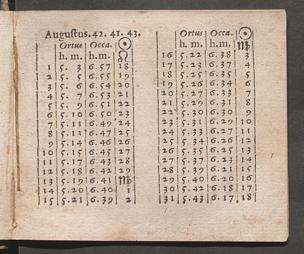 Auguſtus. 42. 41. 43.
Ortus Occa. ☉
h. m. h. m. ♌
1 5. 3 6.57 18
2 5. 5 6.55 19
3 5. 6 6.54 20
4 5. 7 6.53 21
5 5. 9 6.51 22
6 5.10 6.50 23
7 5.11 6.49 24
8 5.13 6.47 25
9 5.14 6.46 26
10 5.15 6.45 27
11 5.17 6.43 28
12 5.18 6.42 29
13 5.19 6.41 ♍
14 5.20 6.40 1
15 5.21 6.39 2
Ortus Occa. ☉
h. m. h. m. ♍
16 5.22 6.38 3
17 5.23 6.37 4
18 5.25 6.35 5
19 5.26 6.34 6
20 5.27 6.33 7
21 5.29 6.31 8
22 5.30 6.30 9
23 5.31 6.29 10
24 5.33 6.27 11
25 5.34 6.26 12
26 5.35 6.25 13
27 5.37 6.23 14
28 5.38 6.22 15
29 5.40 6.20 16
30 5.42 6.18 17
31 5.43 6.17 18